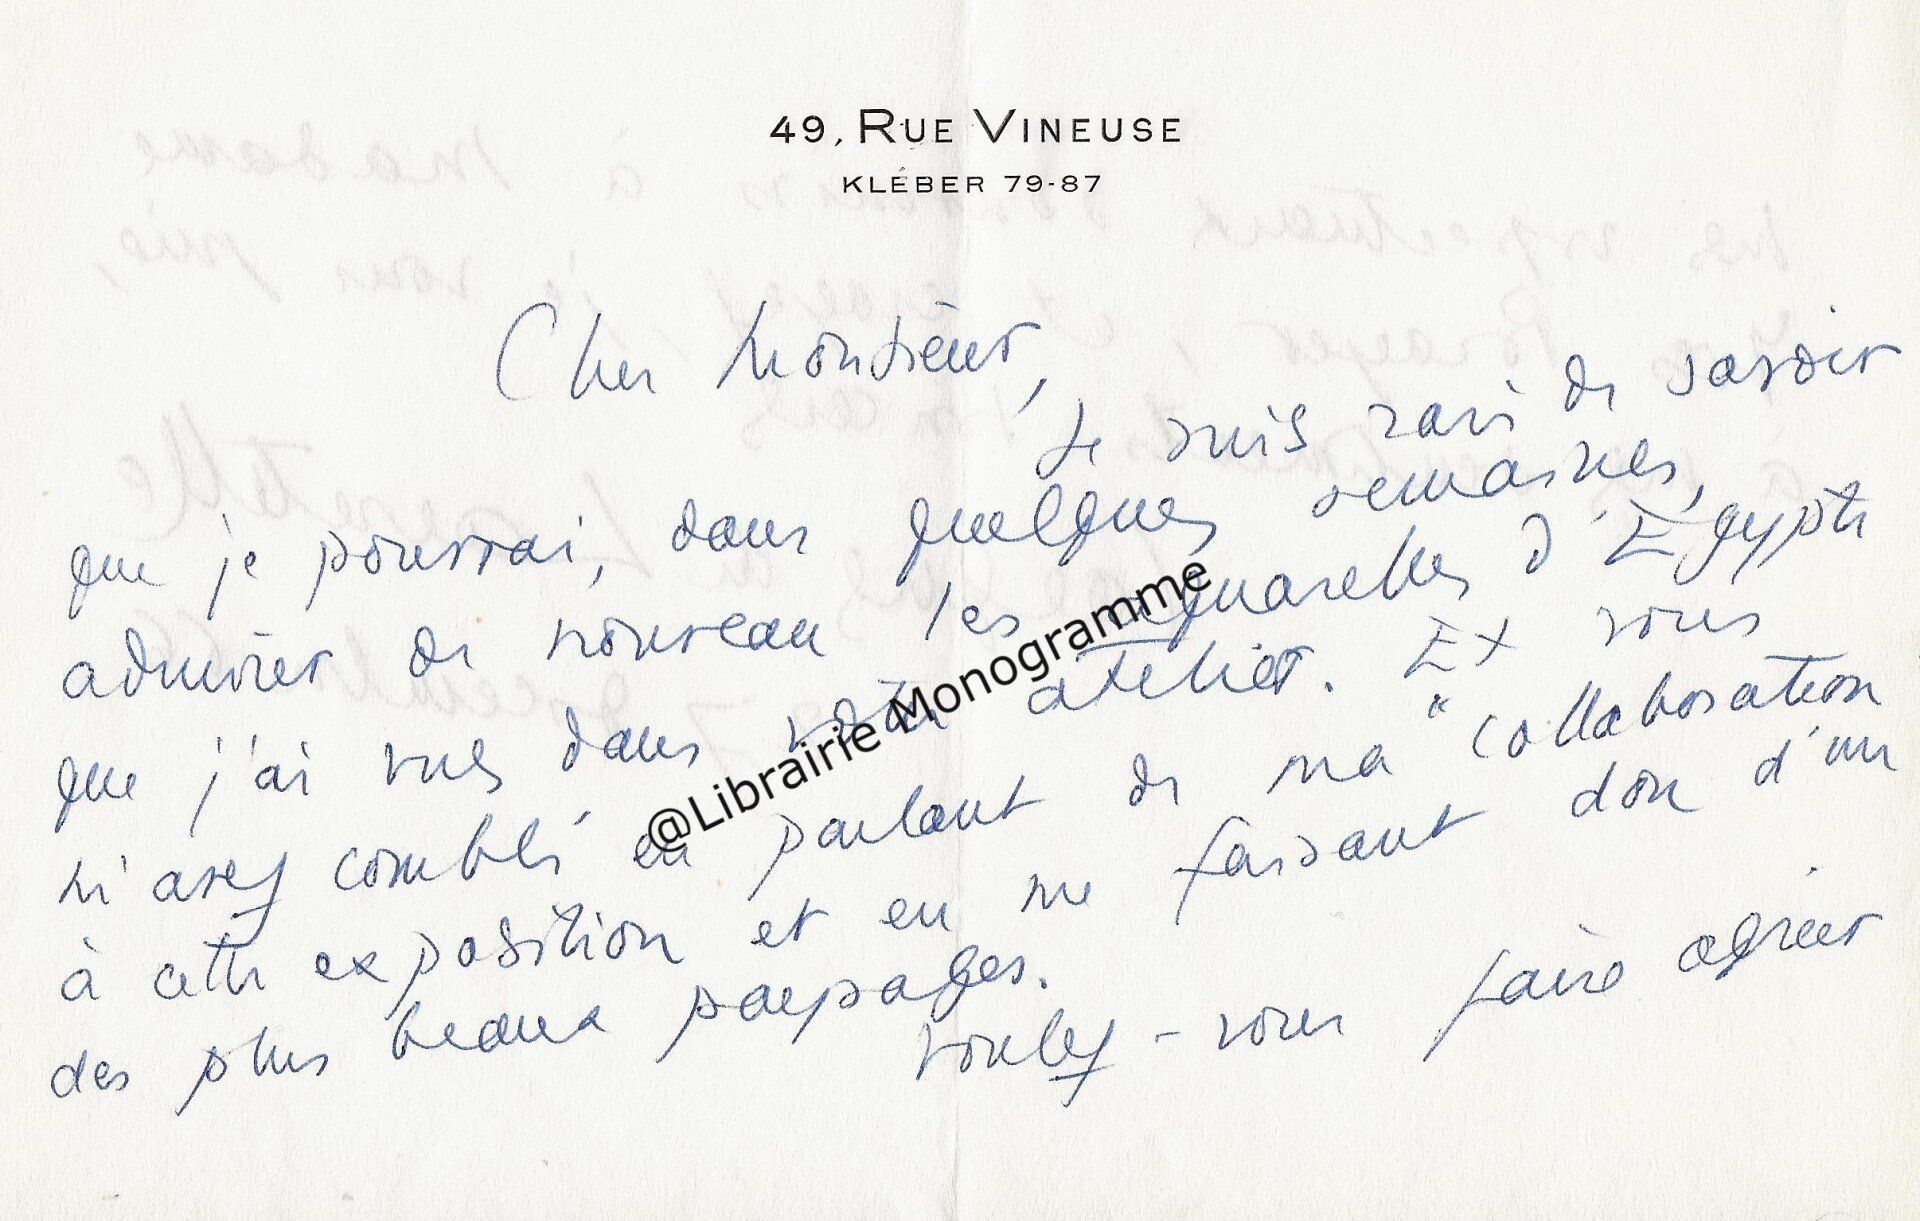 49, RUE VINEUSE
KLÉBER 79-87
Cher Monsieur,
Je suis ravi de savoir
que je pourrai, dans quelques semaines,
admirer de nouveau les aquarelles d'Égypte
que j'ai vues dans votre atelier. Et vous
m'avez comblé en parlant de ma "collaboration
à cette exposition et en me faisant don d'un
des plus beaux paysages.
Voulez-vous faire agréer
@Librairie Monogramme